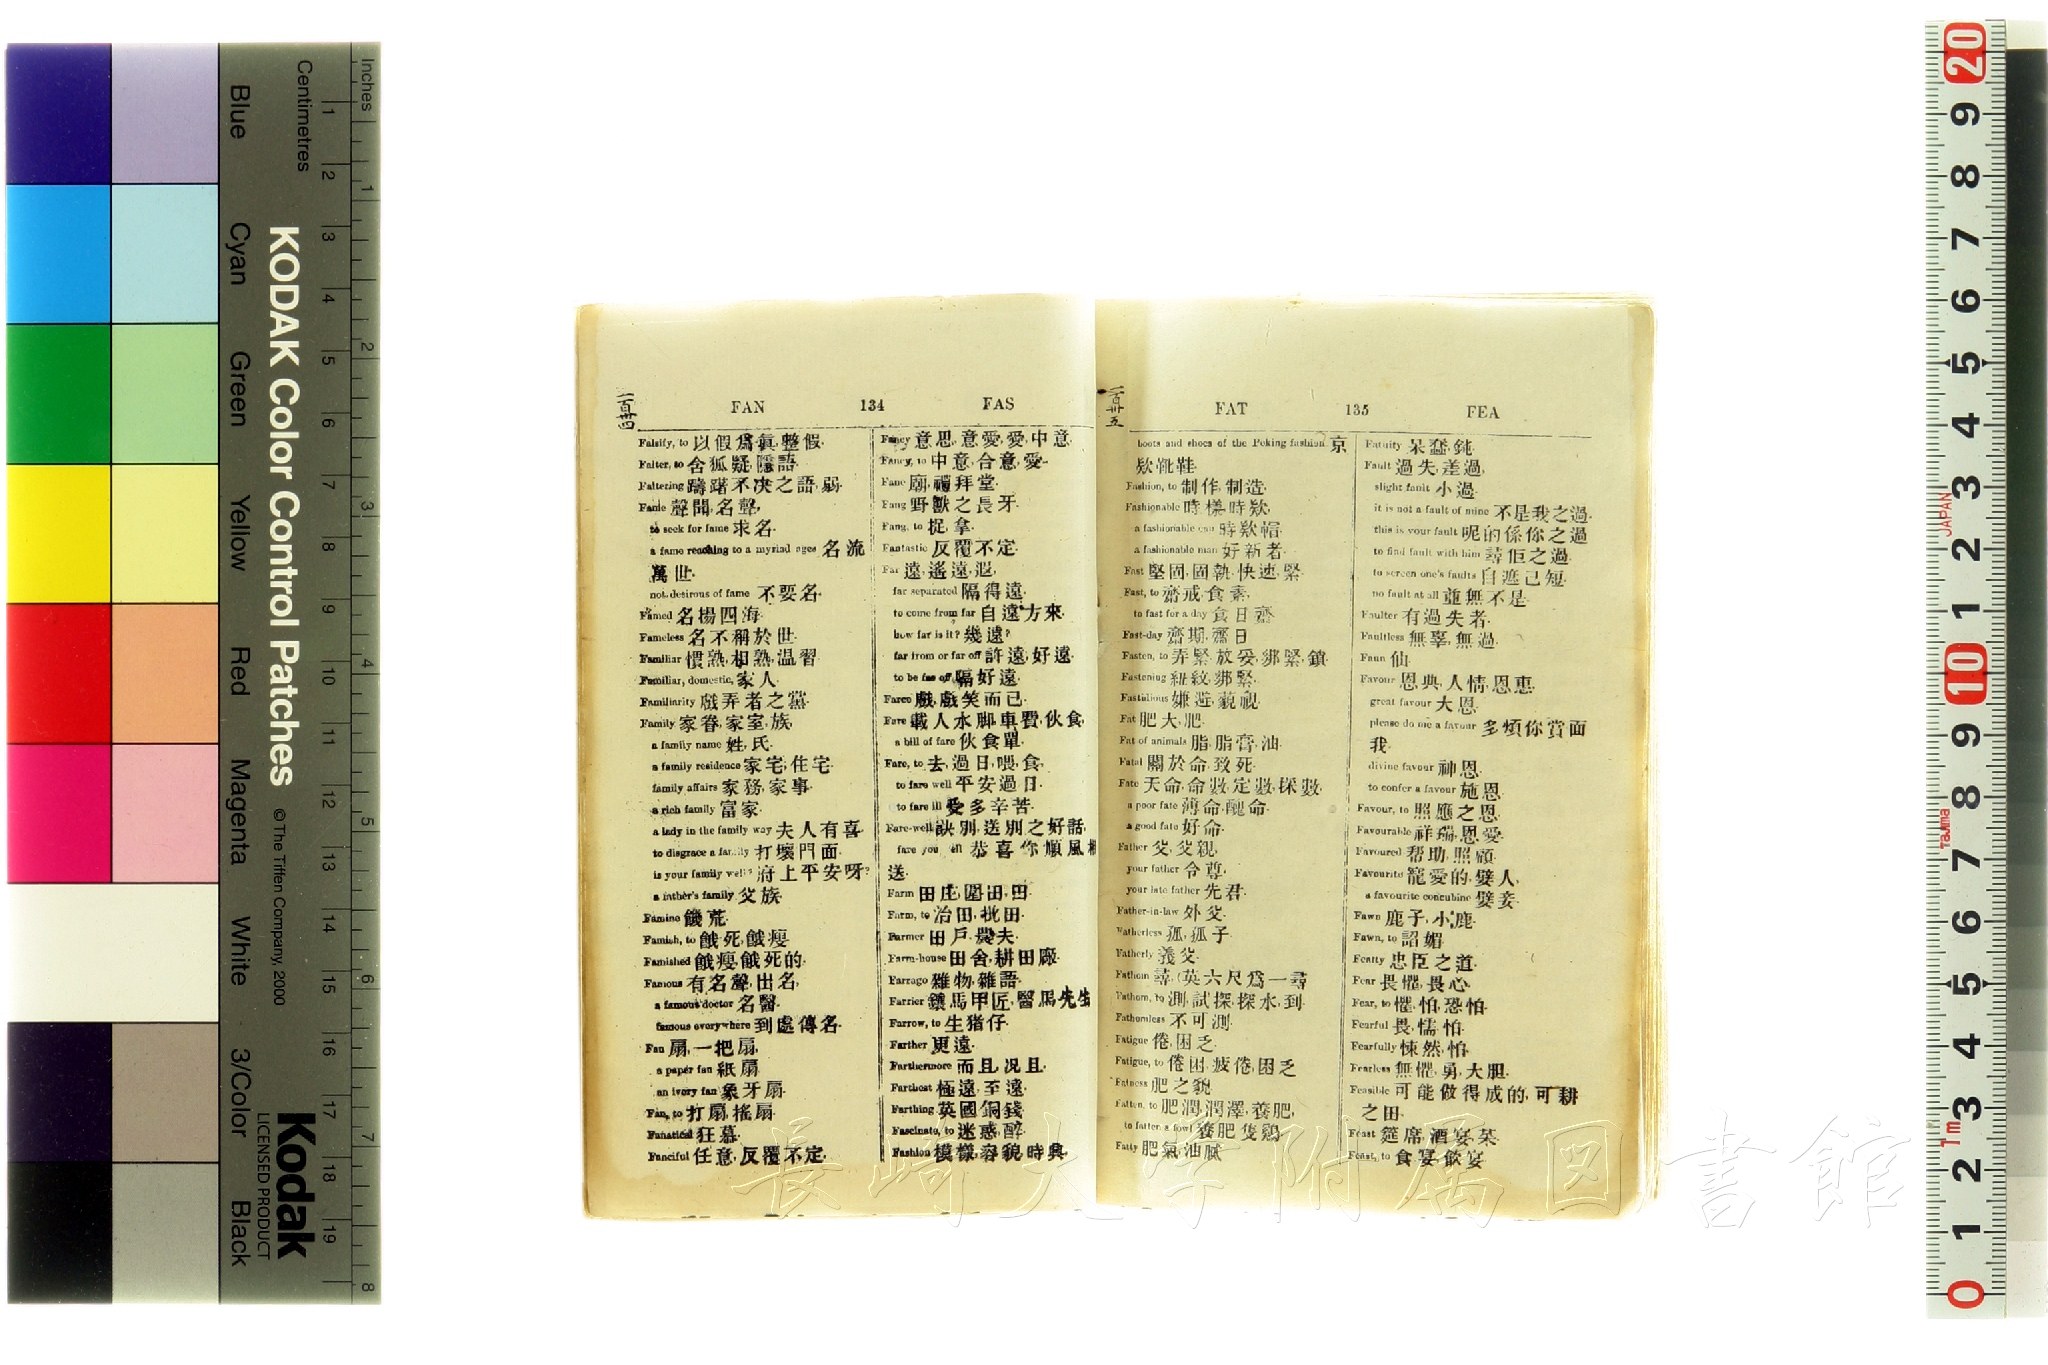 Inches
Centimetres
KODAK Color Control Patches
© The Tiffen Company, 2000
Kodak
LICENSED PRODUCT
Blue
Cyan
Green
Yellow
Red
Magenta
White
3/Color
Black
一百卅四
FAN 134 FAS
Falsify, to 以假爲眞,整假.
Falter, to 含狐疑,隱語.
Faltering 躊躇不决之語,弱.
Fame 聲聞,名聲,
to seek for fame 求名.
a fame reaching to a myriad ages 名流
萬世.
not desirous of fame 不要名.
Famed 名揚四海.
Fameless 名不稱於世.
Familiar 慣熟,相熟,温習.
Familiar, domestic, 家人.
Familiarity 戲弄者之黨.
Family 家眷,家室,族.
a family name 姓,氏.
a family residence 家宅,住宅.
family affairs 家務,家事.
a rich family 富家.
a lady in the family way 夫人有喜.
to disgrace a family 打壞門面.
is your family well? 府上平安呀?
a father's family 父族.
Famine 饑荒.
Famish, to 餓死,餓瘦
Famished 餓瘦,餓死的.
Famous 有名聲,出名,
a famous doctor 名醫.
famous everywhere 到處傳名.
Fan 扇,一把扇,
a paper fan 紙扇
an ivory fan 象牙扇.
Fan, to 打扇,搖扇.
Fanatical 狂慕.
Fanciful 任意,反覆不定.
Fancy 意思,意愛,愛,中意.
Fancy, to 中意,合意,愛.
Fane 廟,禮拜堂.
Fang 野獸之長牙.
Fang, to 捉,拿.
Fantastic 反覆不定.
Far 遠,遙遠,遐,
far separated 隔得遠.
to come from far 自遠方來.
how far is it? 幾遠?
far from or far off 許遠,好遠.
to be far off 隔好遠.
Farce 戲,戲笑而已.
Fare 載人水脚,車費,伙食,
a bill of fare 伙食單.
Fare, to 去,過日,喂,食,
to fare well 平安過日.
to fare ill 受多辛苦.
Fare-well 訣別,送別之好話,
fare you well 恭喜你順風相
送.
Farm 田庄,圍田,田.
Farm, to 冶田,批田.
Farmer 田戶,農夫.
Farm-house 田舍,耕田廠.
Farrago 雜物,雜語.
Farrier 鐵馬甲匠,醫馬先生
Farrow, to 生猪仔.
Farther 更遠.
Farthermore 而且,况且.
Farthest 極遠,至遠.
Farthing 英國銅錢.
Fascinate, to 迷惑,醉.
Fashion 模樣,容貌,時興,
一百卅五
FAT 135 FEA
boots and shoes of the Peking fashion 京
欵靴鞋.
Fashion, to 制作,制造.
Fashionable 時樣,時欵,
a fashionable cap 時欵帽.
a fashionable man 好新者.
Fast 堅固,固執,快速,緊.
Fast, to 齋戒,食素,
to fast for a day 食日齋.
Fast-day 齋期,齋日.
Fasten, to 弄緊,放妥,綁緊,鎖.
Fastening 紐紋,綁緊.
Fastidious 嫌,遊,藐視.
Fat 肥大,肥.
Fat of animals 脂,脂膏,油.
Fatal 關於命,致死.
Fate 天命,命數,定數,採數,
a poor fate 薄命,醜命.
a good fate 好命.
Father 父,父親,
your father 令尊.
your late father 先君.
Father-in-law 外父.
Fatherless 孤,孤子.
Fatherly 義父.
Fathom 尋(英六尺爲一尋
Fathom, to 測,試探,探水,到.
Fathomless 不可測.
Fatigue 倦,困乏.
Fatigue, to 倦困,疲倦,困乏
Fatness 肥之貌.
Fatten, to 肥潤,潤澤,養肥,
to fatten a fowl 養肥隻鷄.
Fatty 肥氣,油膩
Fatuity 呆蠢,鈍.
Fault 過失,差過,
slight fault 小過.
it is not a fault of mine 不是我之過.
this is your fault 呢的係你之過
to find fault with him 尋佢之過.
to screen one's faults 自遮己短.
no fault at all 並無不是.
Faulter 有過失者.
Faultless 無辜,無過.
Faun 仙.
Favour 恩典,人情,恩惠.
great favour 大恩.
please do me a favour 多煩你賞面
我.
divine favour 神恩.
to confer a favour 施恩.
Favour, to 照應之恩.
Favourable 祥瑞,恩愛.
Favoured 帮助,照顧.
Favourite 寵愛的,嬖人,
a favourite concubine 嬖妾.
Fawn 鹿子,小鹿.
Fawn, to 諂媚
Fealty 忠臣之道.
Fear 畏懼,畏心.
Fear, to 懼,怕,恐怕.
Fearful 畏,懦,怕.
Fearfully 悚然,怕.
Fearless 無懼,勇,大胆.
Feasible 可能做得成的,可耕
之田.
Feast 筵席,酒宴,菜.
Feast, to 食宴,飲宴
長崎大学附属図書館
JAPAN
Tajima
1m